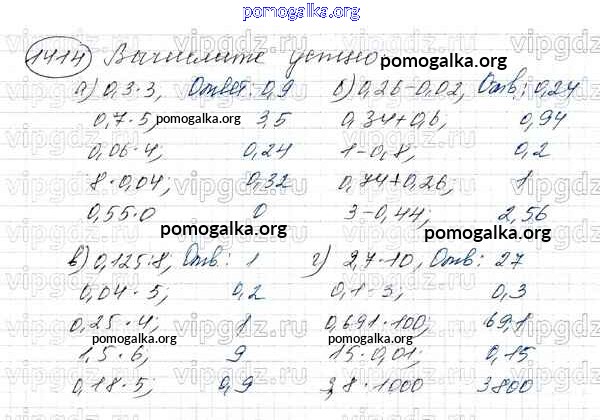 pomogalka.org
1414 Вычислите устно
pomogalka.org
а) 0,3·3, Ответ: 0,9 б) 0,26-0,02, Отв: 0,24
0,7·5, 3,5 0,34+0,6, 0,94
0,06·4; 0,24 1-0,8, 0,2
8·0,04; 0,32 0,74+0,26, 1
0,55·0 0 3-0,44; 2,56
pomogalka.org pomogalka.org
в) 0,125·8; Отв: 1 г) 2,7·10, Отв: 27
0,04·5; 0,2 0,1·3; 0,3
0,25·4; 1 0,691·100; 69,1
1,5·6, 9 15·0,01; 0,15
0,18·5; 0,9 3,8·1000 3800
pomogalka.org pomogalka.org
vipgdz.ru